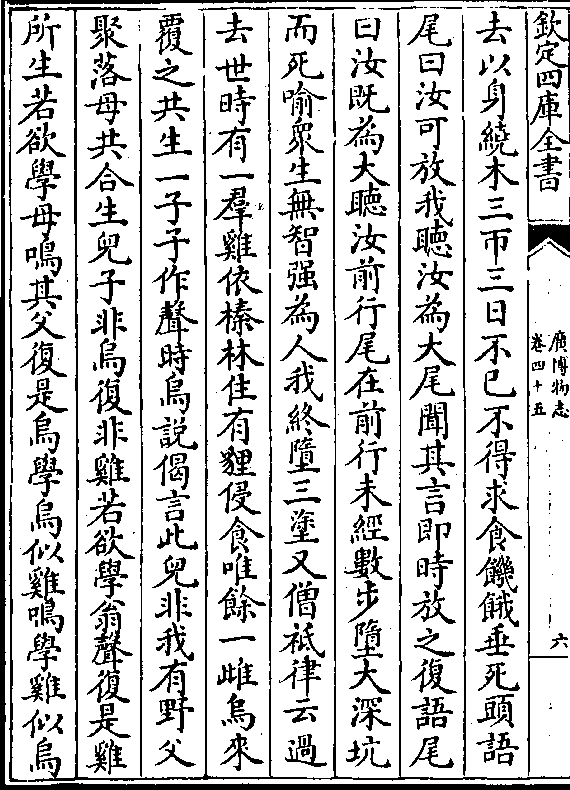 欽定四庫全書
廣博物志
卷四十五
六
去以身繞木三帀三日不已不得求食饑餓垂死頭語
尾曰汝可放我聽汝為大尾聞其言即時放之復語尾
曰汝既為大聽汝前行尾在前行未經數步墮大深坑
而死喻衆生無智强為人我終墮三塗又僧祇律云過
去世時有一羣雞依榛林住有貍侵食唯餘一雌烏來
覆之共生一子子作聲時烏説偈言此兒非我有野父
聚落母共合生兒子非烏復非雞若欲學翁聲復是雞
所生若欲學母鳴其父復是烏學烏似雞鳴學雞似烏